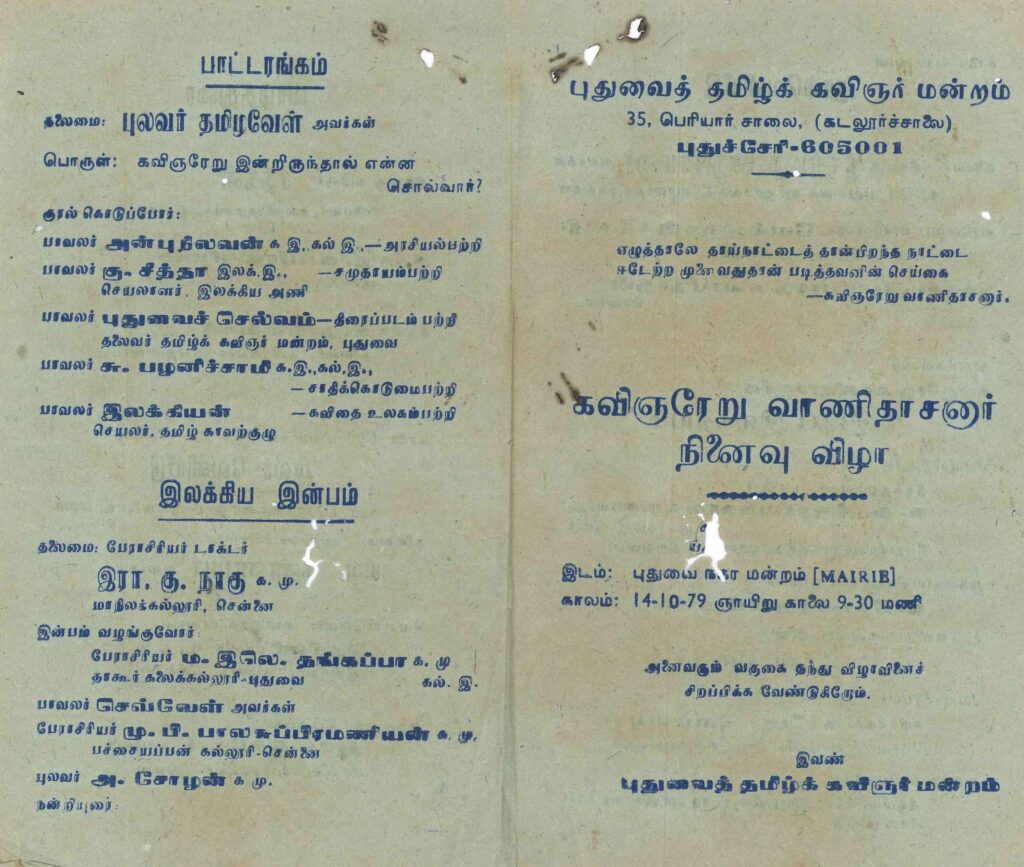 பாட்டரங்கம்
தலைமை: புலவர் தமிழவேள் அவர்கள்
பொருள்: கவிஞரேறு இன்றிருந்தால் என்ன
சொல்வார்?
குரல் கொடுப்போர்:
பாவலர் அன்புநிலவன் க இ., கல் இ.,—அரசியல்பற்றி
பாவலர் கு. சீத்தா இலக்.இ., —சமுதாயம்பற்றி
செயலாளர், இலக்கிய அணி
பாவலர் புதுவைச் செல்வம்—திரைப்படம் பற்றி
தலைவர் தமிழ்க் கவிஞர் மன்றம், புதுவை
பாவலர் சு. பழனிச்சாமி க.இ.,கல்,இ.,
—சாதிக்கொடுமைபற்றி
பாவலர் இலக்கியன் —கவிதை உலகம்பற்றி
செயலர், தமிழ் காவற்குழு
இலக்கிய இன்பம்
தலைமை: பேராசிரியர் டாக்டர்
இரா. கு. நாகு க. மு.
மாநிலக்கல்லூரி, சென்னை
இன்பம் வழங்குவோர்:
பேராசிரியர் ம. இலெ. தங்கப்பா க. மு
தாகூர் கலைக்கல்லூரி-புதுவை கல். இ.
பாவலர் செவ்வேள் அவர்கள்
பேராசிரியர் மு. பி. பாலசுப்பிரமணியன் க. மு,
பச்சையப்பன் கல்லூரி-சென்னை
புலவர் அ. சோழன் க மு.
நன்றியுரை:
புதுவைத் தமிழ்க் கவிஞர் மன்றம்
35, பெரியார் சாலை, (கடலூர்ச்சாலை)
புதுச்சேரி-605001
எழுத்தாலே தாய்நாட்டைத் தான்பிறந்த நாட்டை
ஈடேற்ற முனைவதுதான் படித்தவனின் செய்கை
—கவிஞரேறு வாணிதாசனார்.
கவிஞரேறு வாணிதாசனார்
நினைவு விழா
இடம்: புதுவை நகர மன்றம் [MAIRIE]
காலம்: 14-10-79 ஞாயிறு காலை 9-30 மணி
அனைவரும் வருகை தந்து விழாவினைச்
சிறப்பிக்க வேண்டுகிறோம்.
இவண்
புதுவைத் தமிழ்க் கவிஞர் மன்றம்